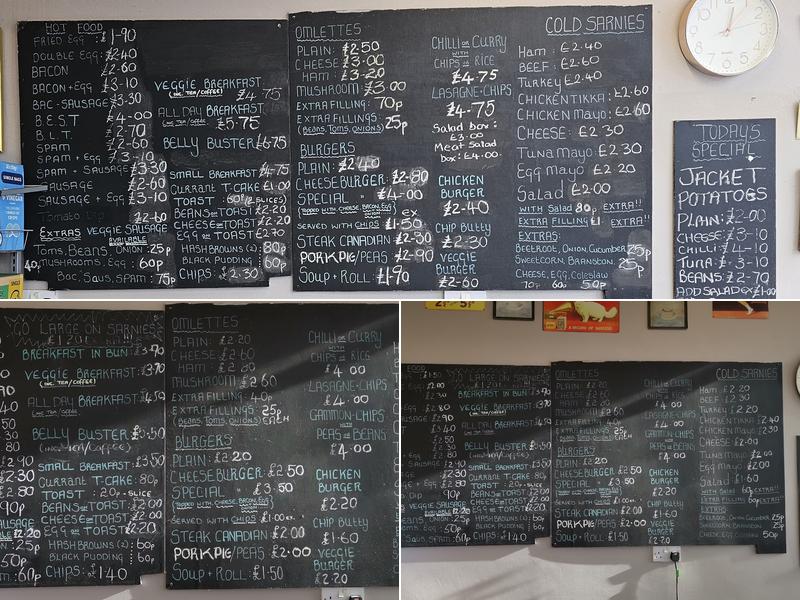 HOT FOOD
FRIED Egg : £1-90
DOUBLE Egg: £2-40
BACON £2-60
BACON+Egg £3-10
BAC-SAUSAGE £3-30
B.E.S.T £4-10
B.L.T. £2-70
SPAM £2-60
SPAM + Egg £3-10
SPAM + SAUSAGE £3-30
SAUSAGE £2-60
SAUSAGE + Egg £3-10
£2-60
EXTRAS VEGGIE SAUSAGE
AVAILABLE
Toms, Beans, ONION: 25p
MUSHROOMS Egg: 60p
Bac, Saus, SPAM: 75p
VEGGIE BREAKFAST
(INC. TEA/COFFEE) £4-75
ALL DAY BREAKFAST
(INC TEA/COFFEE) £5-75
BELLY BUSTER £6-75
SMALL BREAKFAST: £4-75
CURRANT T-CAKE £1-00
TOAST : 60p (2 SLICES)
BEANS ON TOAST £2.20
CHEESE ON TOAST £2.20
Egg ON TOAST £2.70
HASHBROWNS (2): 80p
BLACK PUDDING : 60p
CHIPS: £2-30
OMLETTES
PLAIN: £2-50
CHEESE £3-00
HAM : £3-20
MUSHROOM £3-00
EXTRA FILLING: 70p
EXTRA FILLINGS: 25p
(BEANS, TOMS, ONIONS)
BURGERS
PLAIN: £2-40
CHEESEBURGER: £2-80
SPECIAL £4-00
(TOPPED WITH CHEESE, BACON, EGG)
SERVED WITH CHIPS £1-50 EX
STEAK CANADIAN £2-50
PORKPIE/PEAS £2-90
SOUP + ROLL: £1-90
CHILLI OR CURRY
WITH
CHIPS OR RICE
£4-75
LASAGNE-CHIPS
£4-75
Salad box:
£3:00
Meat Salad
box: £4.00
CHICKEN
BURGER
£2-40
CHIP BUTTY
£2-30
VEGGIE
BURGER
£2-60
COLD SARNIES
HAM : £2-40
BEEF : £2-60
TURKEY £2-40
CHICKEN TIKKA : £2-60
CHICKEN MAYO: £2-60
CHEESE: £2-30
TUNA MAYO: £2-30
Egg MAYO £2-20
Salad £2-00
WITH SALAD 80p EXTRA!!
EXTRA FILLING £1 EXTRA!!
EXTRAS:
BEETROOT, ONION, CUCUMBER 25p
SWEETCORN, BRANSTON. 25p
CHEESE, EGG, COLESLAW
70p 60p 50p
TODAYS
SPECIAL
JACKET
POTATOES
PLAIN: £2-00
CHEESE: £3-10
CHILLI : £4-10
TUNA: £-3-10
BEANS: £2-70
ADD SALAD EX £1-00
GO LARGE ON SARNIES
BREAKFAST IN BUN: £3-70
VEGGIE BREAKFAST £3.70
(INC. TEA/COFFEE)
ALL DAY BREAKFAST £4.50
(INC TEA/COFFEE)
BELLY BUSTER £5.50
(INC TEA/COFFEE)
SMALL BREAKFAST: £3.50
CURRANT T-CAKE: 80p
TOAST : 20p A SLICE
BEANS ON TOAST £2.00
CHEESE ON TOAST £2.00
EGG ON TOAST £2.20
HASHBROWNS (2): 60p
BLACK PUDDING : 60p
CHIPS: £1-40
OMLETTES
PLAIN: £2 20
CHEESE £2 60
HAM : £2 80
MUSHROOM £2 60
EXTRA FILLING: 40p
EXTRA FILLINGS: 25p EACH
(BEANS, TOMS, ONIONS)
BURGERS
PLAIN: £2 20
CHEESEBURGER: £2 50
SPECIAL : £3 50
(TOPPED WITH CHEESE, BACON, EGG)
SERVED WITH CHIPS £1.00 EX.
STEAK CANADIAN £2.00
PORKPIE/PEAS £2.00
SOUP + ROLL: £1-50
CHILLI OR CURRY
WITH
CHIPS OR RICE
£4 00
LASAGNE-CHIPS
£4.00
GAMMON-CHIPS
WITH
PEAS OR BEANS
£4.00
CHICKEN
BURGER
£2.20
CHIP BUTTY
£1-60
VEGGIE
BURGER
£2-20
FOOD
GO LARGE ON SARNIES
BREAKFAST IN BUN
VEGGIE BREAKFAST
ALL DAY BREAKFAST
BELLY BUSTER
SMALL BREAKFAST
CURRANT T-CAKE
TOAST
BEANS ON TOAST
CHEESE ON TOAST
EGG ON TOAST
HASHBROWNS (2): 60p
BLACK PUDDING : 60p
CHIPS: £1.40
OMLETTES
PLAIN: £2 20
CHEESE £2 60
HAM : £2 80
MUSHROOM £2 60
EXTRA FILLING: 40p
EXTRA FILLINGS: 25p EACH
(BEANS, TOMS, ONIONS)
BURGERS
PLAIN: £2.20
CHEESEBURGER: £2 50
SPECIAL £3 50
SERVED WITH CHIPS
STEAK CANADIAN £2.00
PORKPIE/PEAS £2.00
SOUP + ROLL: £1.50
CHILLI OR CURRY
CHIPS OR RICE
£4 00
LASAGNE-CHIPS
£4.00
GAMMON-CHIPS
PEAS OR BEANS
£4.00
CHICKEN
BURGER
£2.20
CHIP BUTTY
£1-60
VEGGIE
BURGER
£2.20
COLD SARNIES
HAM : £2 20
BEEF : £2 30
TURKEY £2.20
CHICKEN TIKKA £2.40
CHICKEN MAYO £2.30
CHEESE £2.00
TUNA MAYO £2.00
EGG MAYO £2.00
SALAD
EXTRAS
BEETROOT, ONION, CUCUMBER 25p
SWEETCORN, BRANSTON 25p
CHEESE, EGG, COLESLAW 50p